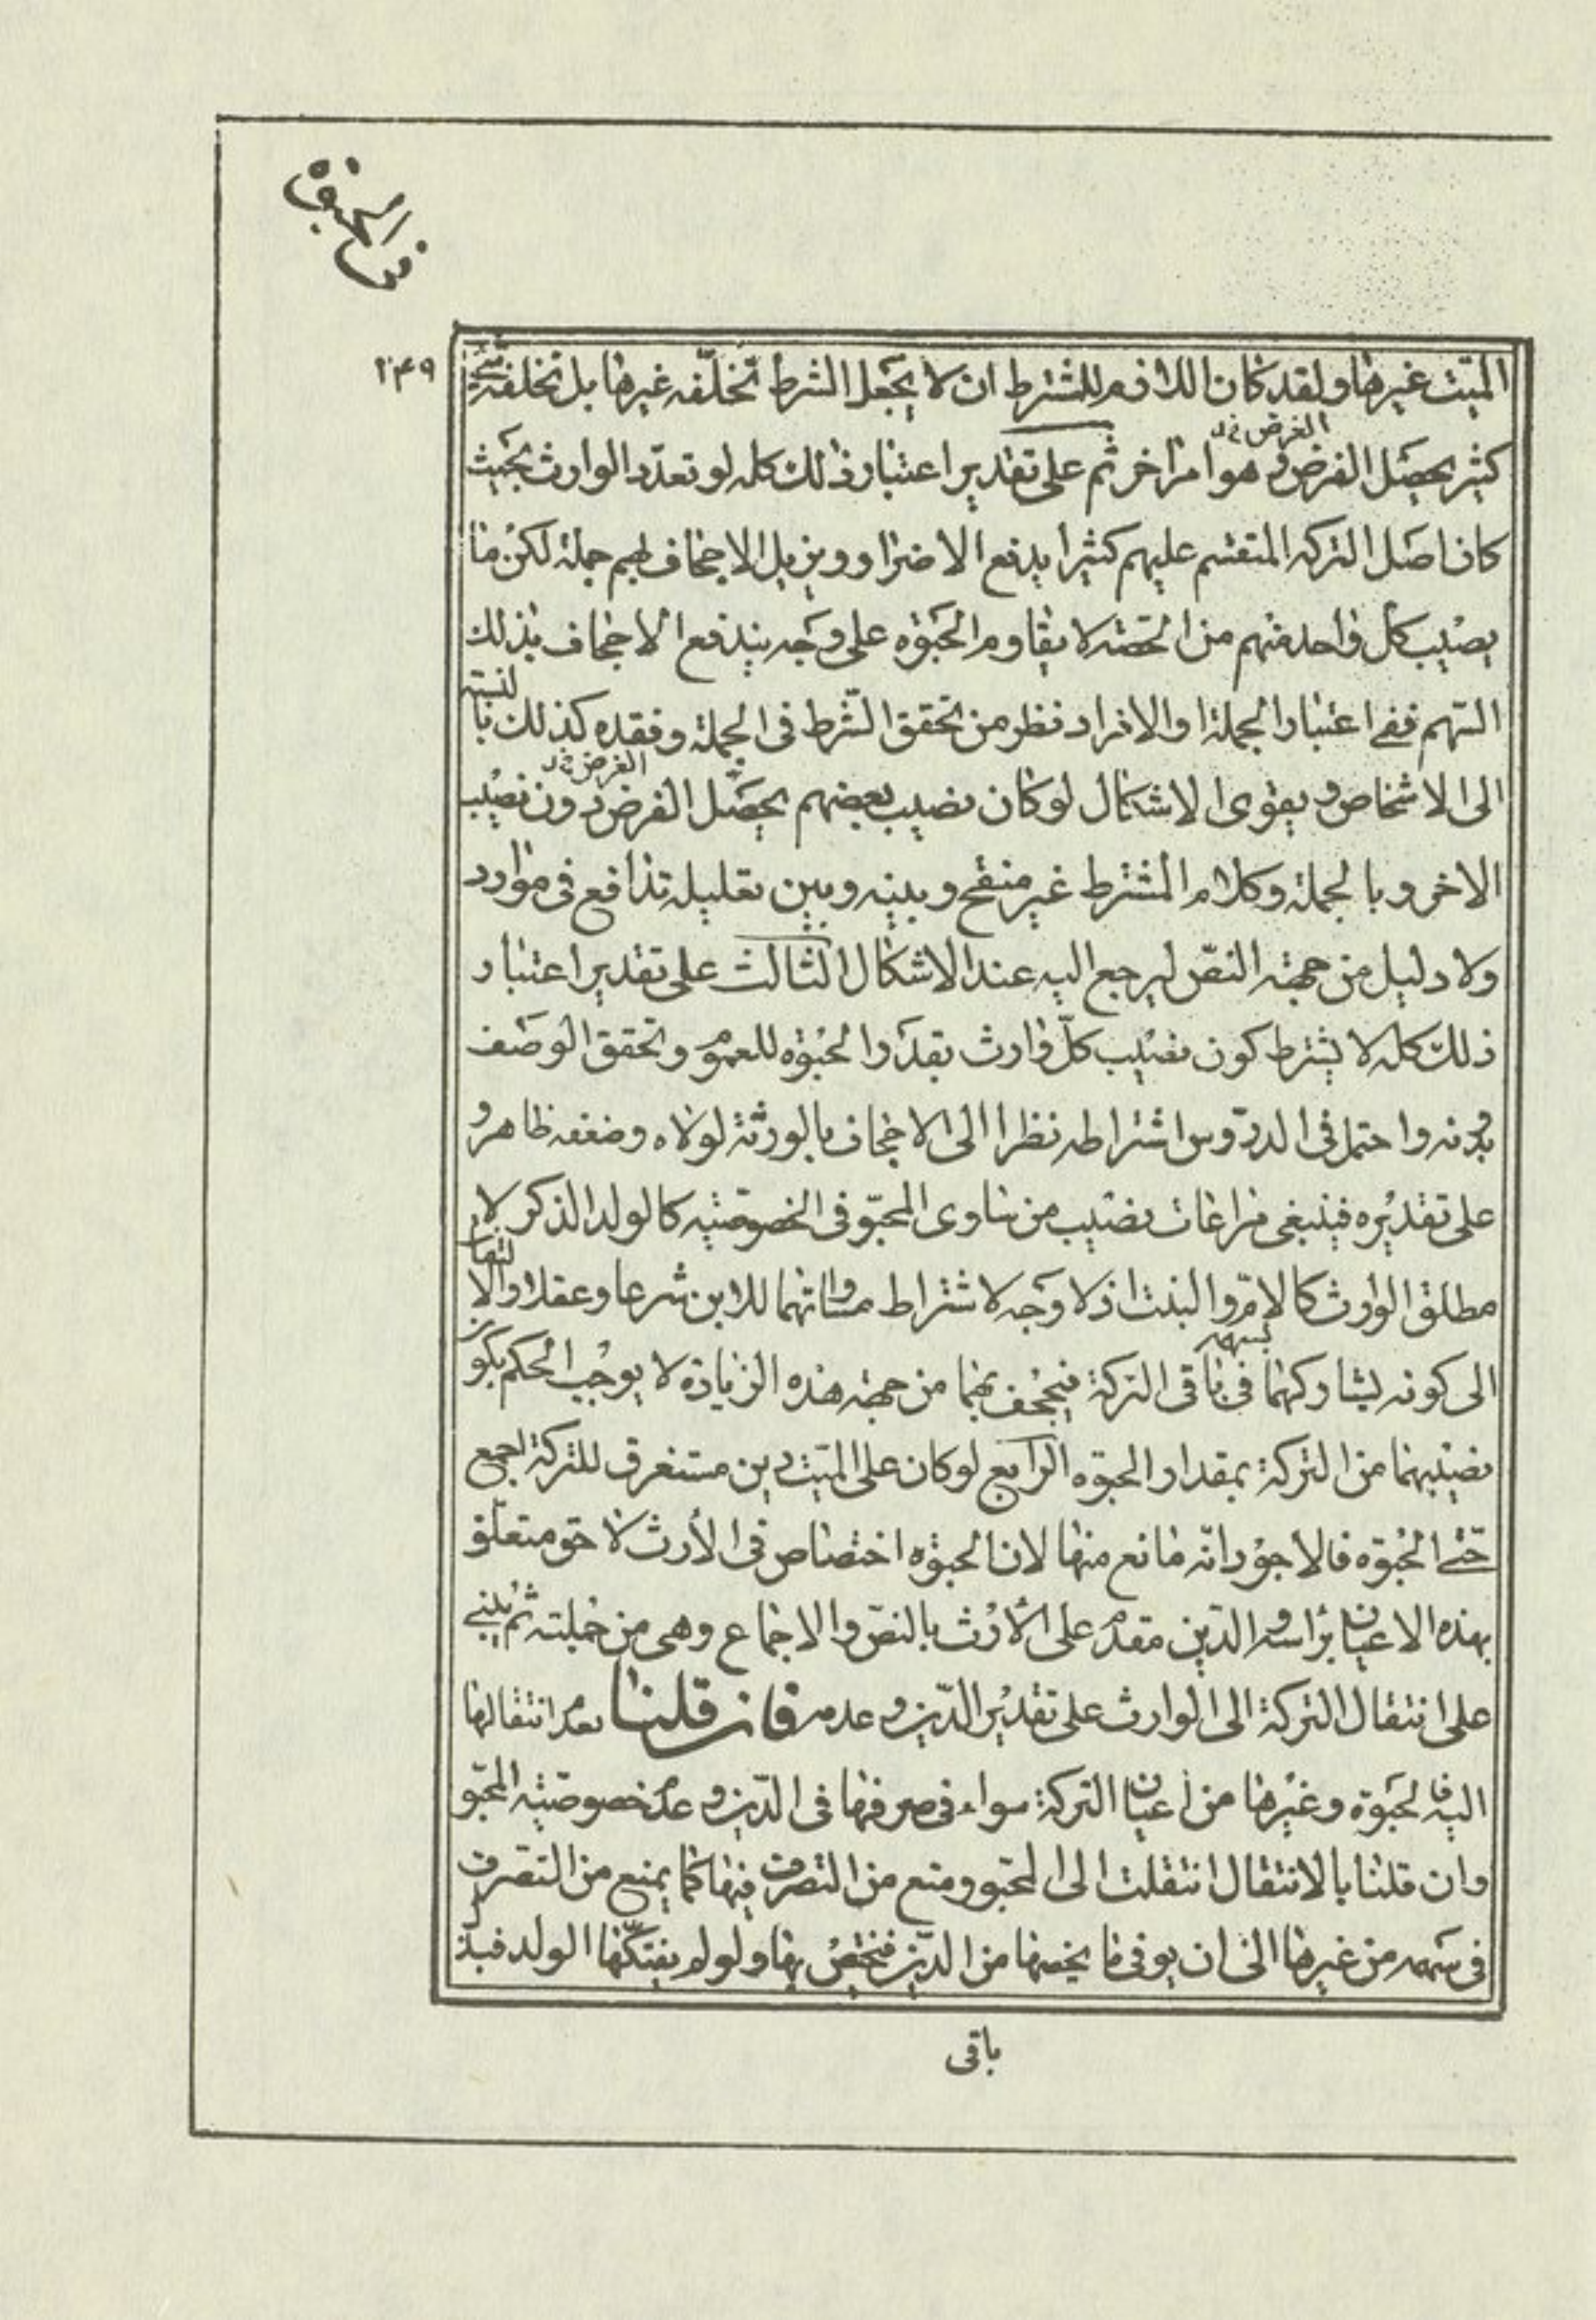 في الحبوة
٢٤٩
الميّت غيرها ولقد كان اللازم للمشترط ان لا يجعل الشرط تخلّفه غيرها بل تخلفه شئ
كثير يحصل الغرض و هو امر اخر ثم على تقدير اعتبار ذلك كله لو تعدّد الوارث بحيث
الغرض خ د
كان اصل التركه المتقسم عليهم كثيرا يدفع الاضرار ويزيل الاجحاف بهم جملة لكن ما
يصيب كل واحد منهم من الحصّة لا يقاوم الحبوه على وجه يندفع الاجحاف بذلك
السّهم ففى اعتبار الجملة او الافراد نظر من تحقق الشّرط فى الجملة وفقده كذلك بالنسبة
الى الاشخاص ويقوى الاشكال لو كان نصيب بعضهم يحصّل الغرض دون نصيب
الغرض خ د
الاخر وبالجملة وكلام المشترط غير منقح وبينه وبين تعليله تدافع فى موارد
ولا دليل من جهة النصّ ليرجع اليه عند الاشكال الثالث على تقدير اعتبار
ذلك كله لا يشترط كون نصيب كلّ وارث بقدر الحبوه للعموم وتحقق الوصف
بدونه واحتمل فى الدروس اشتراطه نظرا الى الاجحاف بالورثة لولاه وضعفه ظاهر و
على تقديره فينبغى مراعات نصيب من ساوى المحبّو فى الخصوصيّه كالولد الذكر لا
مطلق الوارث كالامّ والبنت اذ لا وجه لاشتراط مساواتهما للابن شرعا وعقلا والالتفات
الى كونه يشاركهما فى باقى التركة فيجحف بهما من جهة هذه الزيادة لا يوجب الحكم بكون
بسهمه
نصيبهما من التركة بمقدار الحبوه الرابع لو كان على الميّت دين مستغرق للتركة اجمع
حتّى الحبوه فالاجود انّه مانع منها لان الحبوه اختصاص فى الارث لا حق متعلّق
بهذه الاعيان براسه والدّين مقدم على الارث بالنصّ والاجماع وهى من جملته ثم يبنى
على انتقال التركة الى الوارث على تقدير الدّين وعدمه فان قلنا بعدم انتقالها
اليه فالحبوة وغيرها من اعيان التركة سواء فى صرفها فى الدّين وعدم خصوصيّه المحبّو
وان قلنا بالانتقال انتقلت الى المحبّو ومنع من التصرف فيها كما يمنع من التصرف
فى سهمه من غيرها الى ان يوفى ما يخصها من الدّين فتختصّ بها ولو لم يفتكّها الولد فبذل
باقى